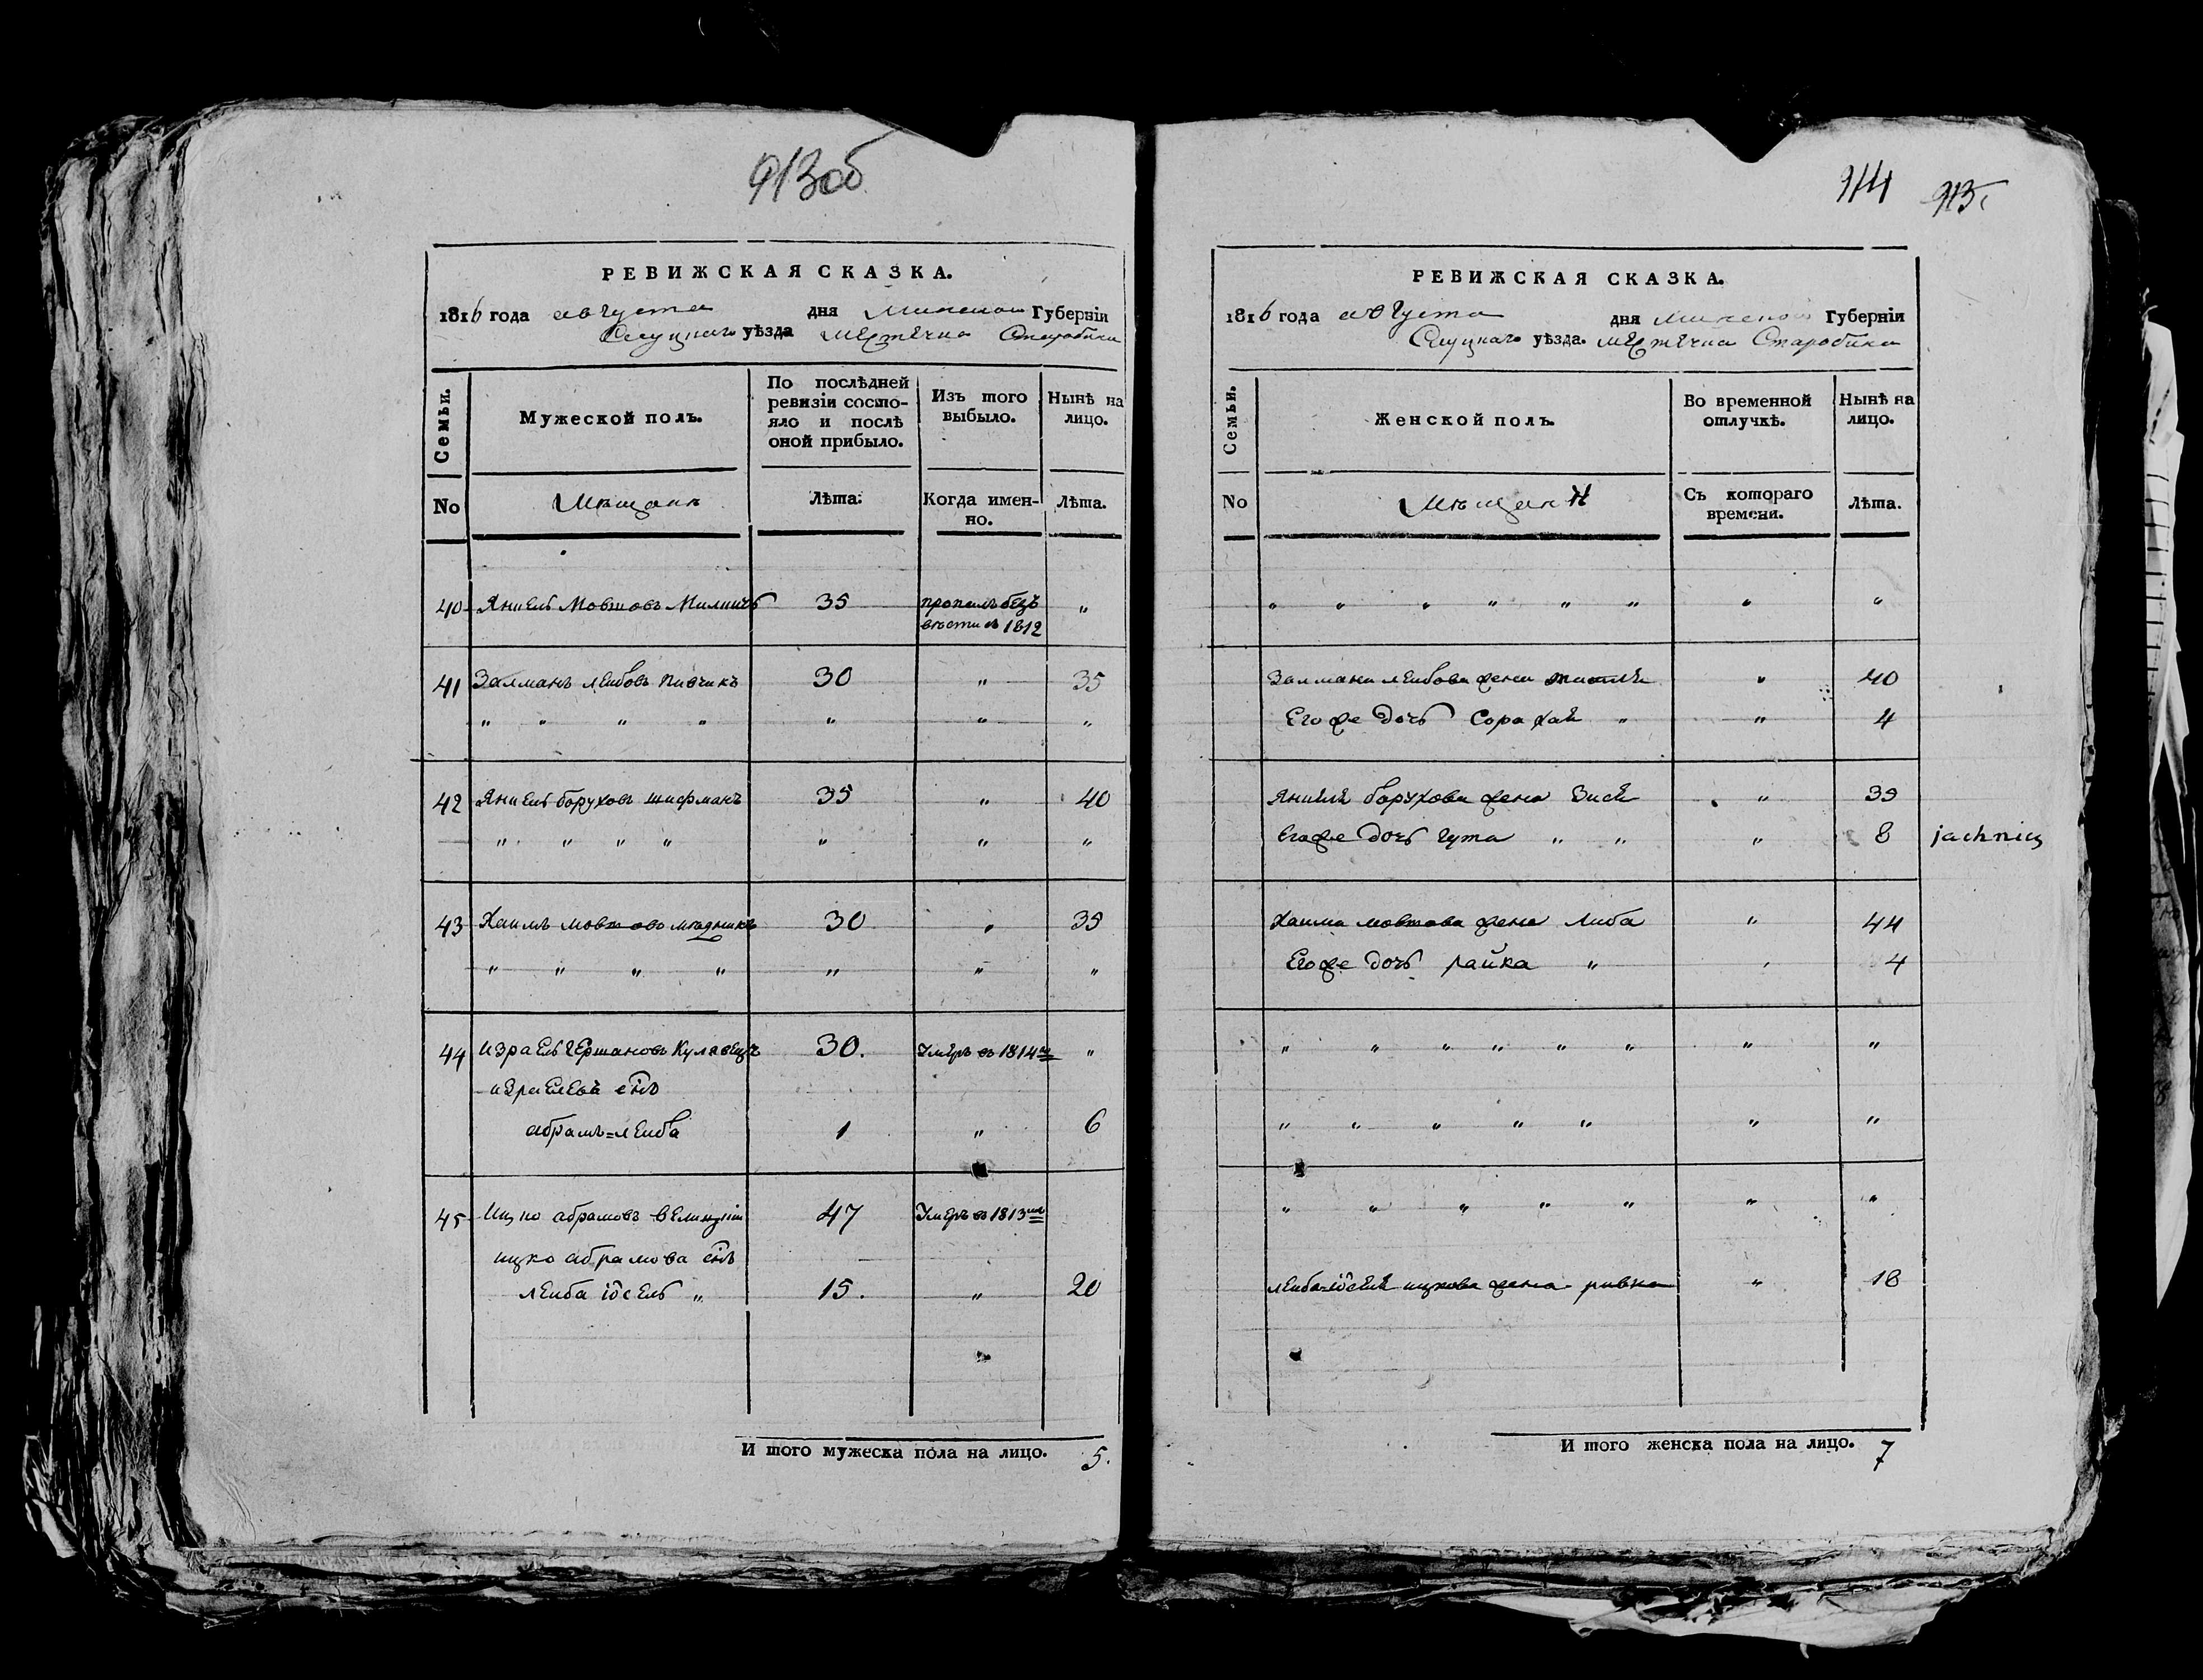 913об
РЕВИЖСКАЯ СКАЗКА.
1816 года августа дня Минской Губерніи
Слуцкаго уѣзда местечка Старобина
Семьи.
Мужеской полъ.
По послѣдней ревизіи состояло и послѣ оной прибыло.
Изъ того выбыло.
Нынѣ на лицо.
No
Мѣщанъ
Лѣта.
Когда именно.
Лѣта.
40 Янкель Мовшовъ 35 пропалъ безъ "
вѣсти въ 1812
41 Залманъ Лейбовъ Пивчикъ 30 " 35
" " " " " " "
42 Янкель Боруховъ Шифманъ 35 " 40
" " " " " " "
43 Хаимъ Мовшовъ 30 " 35
" " " " " " "
44 Израель Гершановъ 30. Умеръ въ 1814мъ "
Израелевъ снъ
Абрамъ=Лейба 1 " 6
45 Ицко Абрамовъ 47 Умеръ въ 1813мъ
Ицко Абрамова снъ
Лейба Іосель " 15. " 20
И того мужеска пола на лицо. 5.
914 913
РЕВИЖСКАЯ СКАЗКА.
1816 года августа дня Минской Губерніи
Слуцкаго уѣзда. местечка Старобина
Семьи.
Женской полъ.
Во временной отлучкѣ.
Нынѣ на лицо.
No
Мѣщанъ
Съ котораго времени.
Лѣта.
" " " " " " " "
Залмана Лейбова жена " 40
Его же дочь Сора Хая " " 4
Янкеля Борухова жена Зися " 39
Его же дочь Гута " " " 8 jachnicz
Хаима Мовшова жена Либа " 44
Его же дочь Райка " " 4
" " " " " " " "
" " " " " " "
" " " " " " "
Лейба=Іоселя Ицкова жена Ривка " 18
И того женска пола на лицо. 7